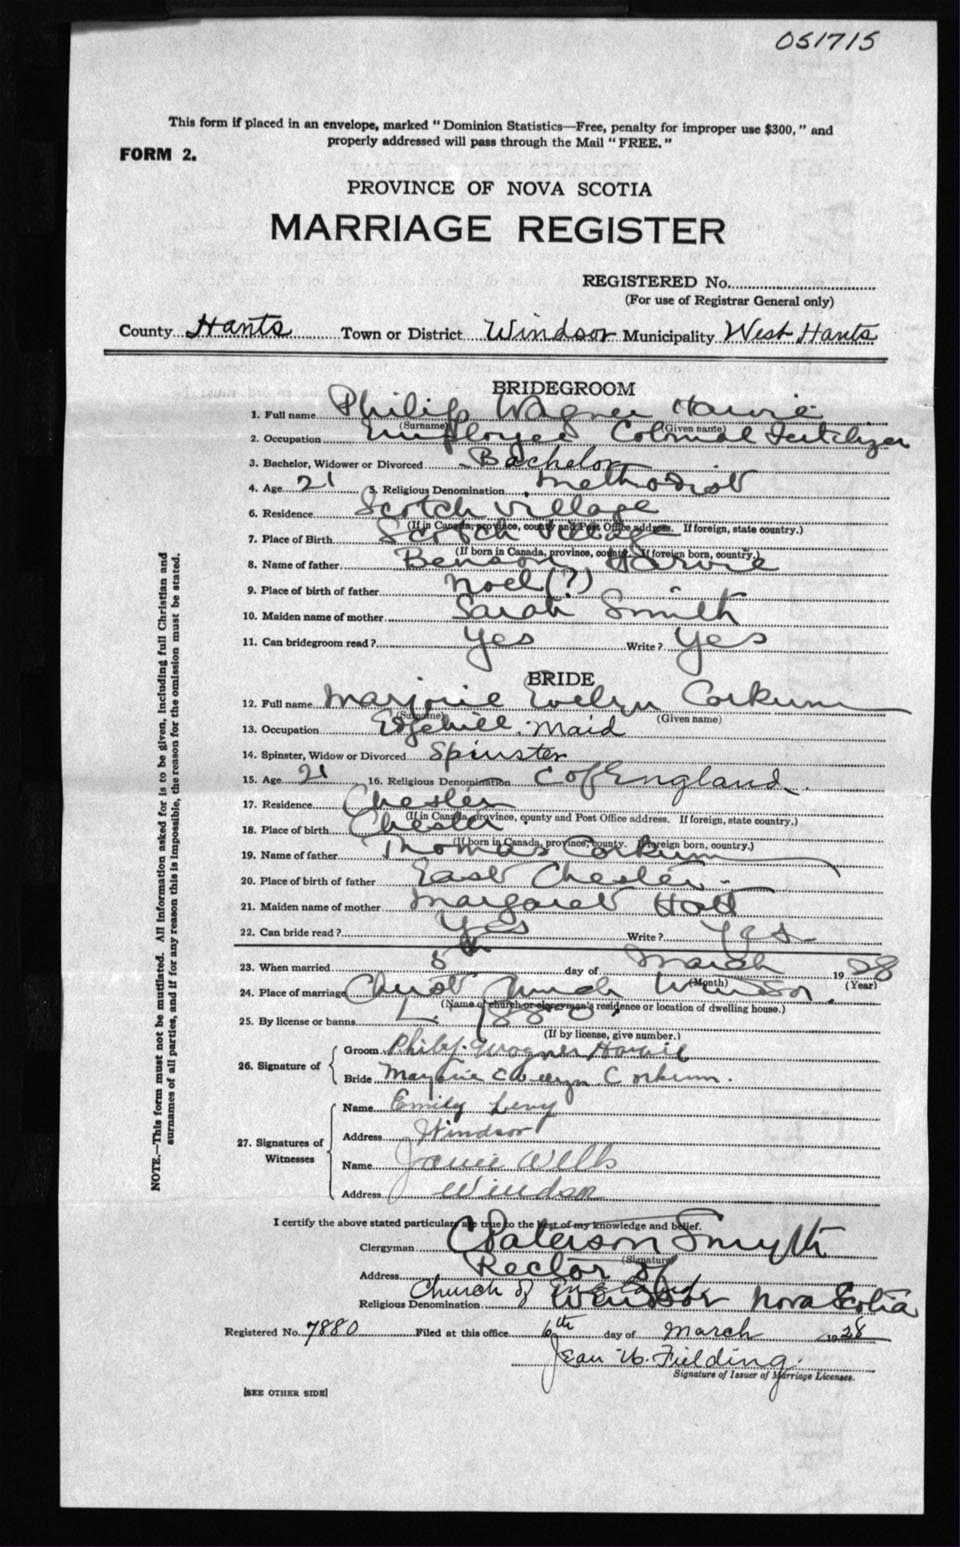 051715
This form if placed in an envelope, marked "Dominion Statistics—Free, penalty for improper use $300," and
properly addressed will pass through the Mail "FREE."
FORM 2.
PROVINCE OF NOVA SCOTIA
MARRIAGE REGISTER
REGISTERED No.
(For use of Registrar General only)
County Hants Town or District Windsor Municipality West Hants
BRIDEGROOM
1. Full name Philip Wagner Harvie
(Surname) (Given name)
2. Occupation Employee Colonial Fertilizer
3. Bachelor, Widower or Divorced Bachelor
4. Age 21 5. Religious Denomination Methodist
6. Residence Scotch Village
(If in Canada, province, county and Post Office address. If foreign, state country.)
7. Place of Birth Scotch Village
(If born in Canada, province, county. If foreign born, country.)
8. Name of father Benson Harvie
9. Place of birth of father Noel (?)
10. Maiden name of mother Sarah Smith
11. Can bridegroom read? Yes Write? Yes
BRIDE
12. Full name Marjorie Evelyn Corkum
(Surname) (Given name)
13. Occupation Edgehill. Maid
14. Spinster, Widow or Divorced Spinster
15. Age 21 16. Religious Denomination C of England
17. Residence Chester
(If in Canada, province, county and Post Office address. If foreign, state country.)
18. Place of birth Chester
(If born in Canada, province, county. If foreign born, country.)
19. Name of father Thomas Corkum
20. Place of birth of father East Chester
21. Maiden name of mother Margaret Hatt
22. Can bride read? Yes Write? Yes
23. When married 5th day of March 1928
(Month) (Year)
24. Place of marriage Christ Church Windsor.
(Name of church or clergyman's residence or location of dwelling house.)
25. By license or banns L. 7880.
(If by license, give number.)
26. Signature of Groom Philip Wagner Harvie
Bride Marjorie Evelyn Corkum.
27. Signatures of Witnesses
Name Emily Levy
Address Windsor
Name Wells
Address Windsor
I certify the above stated particulars are true to the best of my knowledge and belief.
Clergyman C Paterson Smyth
(Signature)
Address Rector of
Religious Denomination Church of England Windsor Nova Scotia
Registered No. 7880 Filed at this office 6th day of March 1928
Jean W. Fielding.
Signature of Issuer of Marriage Licenses.
[SEE OTHER SIDE]
NOTE.—This form must not be mutilated. All information asked for is to be given, including full Christian and
surnames of all parties, and if for any reason this is impossible, the reason for the omission must be stated.